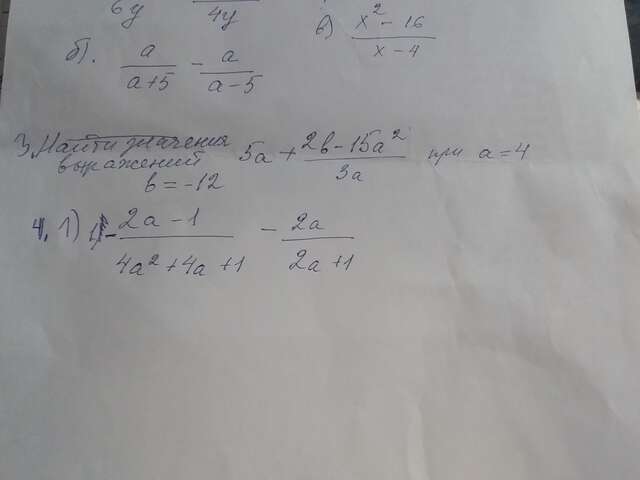 6y 4y
в) x² - 16 / x - 4
б). a / a+5 - a / a-5
3. Найти значения выражений 5a + 2b - 15a² / 3a при a = 4
b = -12
4. 1) 2a - 1 / 4a² + 4a + 1 - 2a / 2a + 1